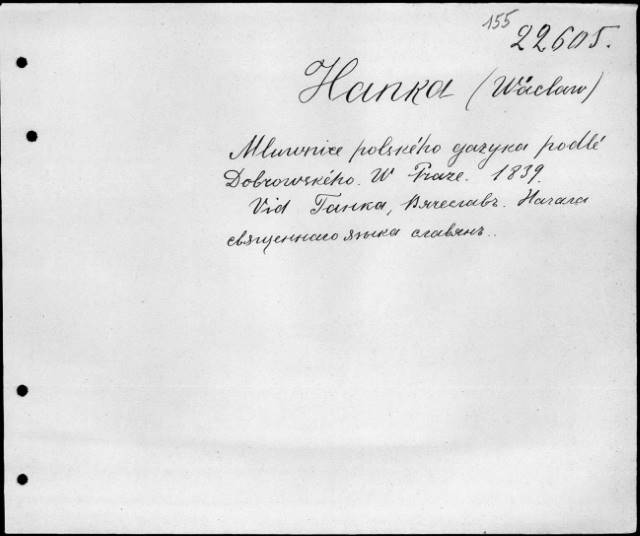 155
22605.
Hanka (Wácław)
Mluwnice polského gazyka podlé
Dobrowského. W Praze. 1839.
Vid Ганка, Вячеславъ. Начала
священнаго языка славянъ..